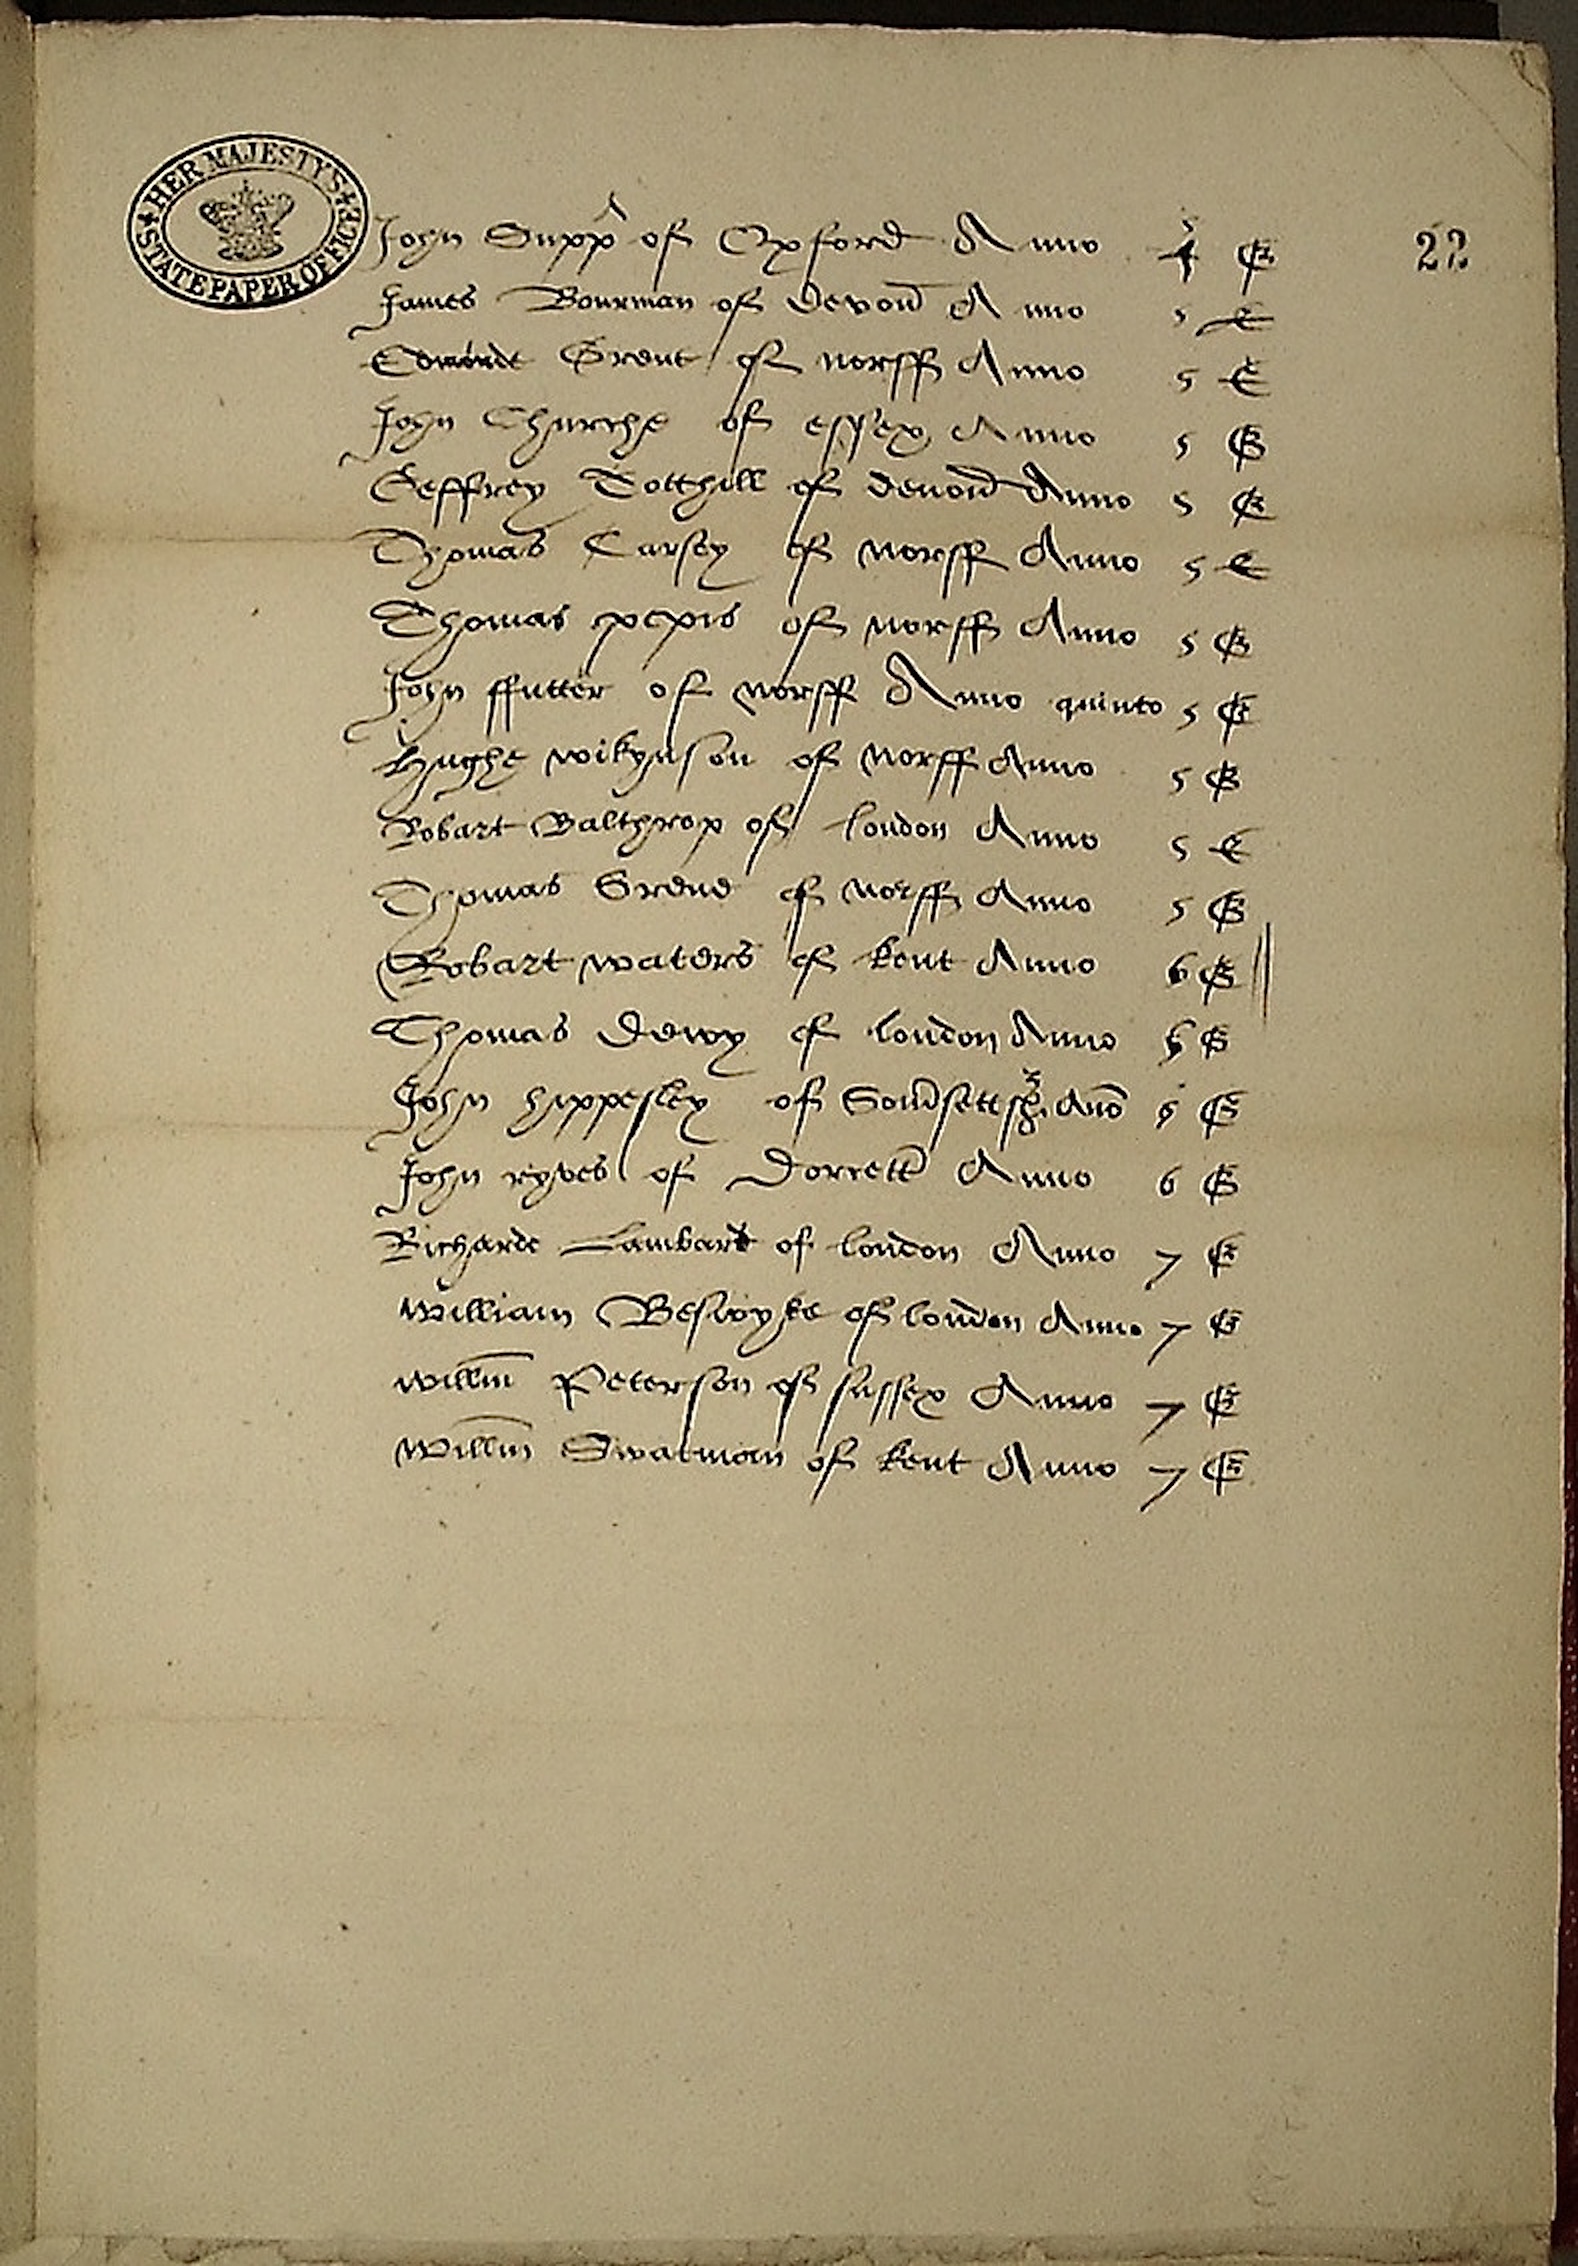 HER MAJESTY'S STATE PAPER OFFICE
22
John Supp of Oxford Anno 4 E
James Bourman of devon Anno 5 E
Edmonde Grent of norff Anno 5 E
John Churche of essex Anno 5 E
Geffrey Totthill of devon Anno 5 E
Thomas Carsey of norff Anno 5 E
Thomas pepis of norff Anno 5 E
John ffutter of norff Anno quinto 5 E
Hughe wikynson of norff Anno 5 E
Robart Balthrop of london Anno 5 E
Thomas Grene of norff Anno 5 E
Robart waters of kent Anno 6 E
Thomas Dewy of london Anno 6 E
John hippesley of Somsett Ano 6 E
John ryves of Dorcett Anno 6 E
Richarde Lambard of london Anno 7 E
William Beswyke of london Anno 7 E
Willm Peterson of sussex Anno 7 E
Willm Swatman of kent Anno 7 E